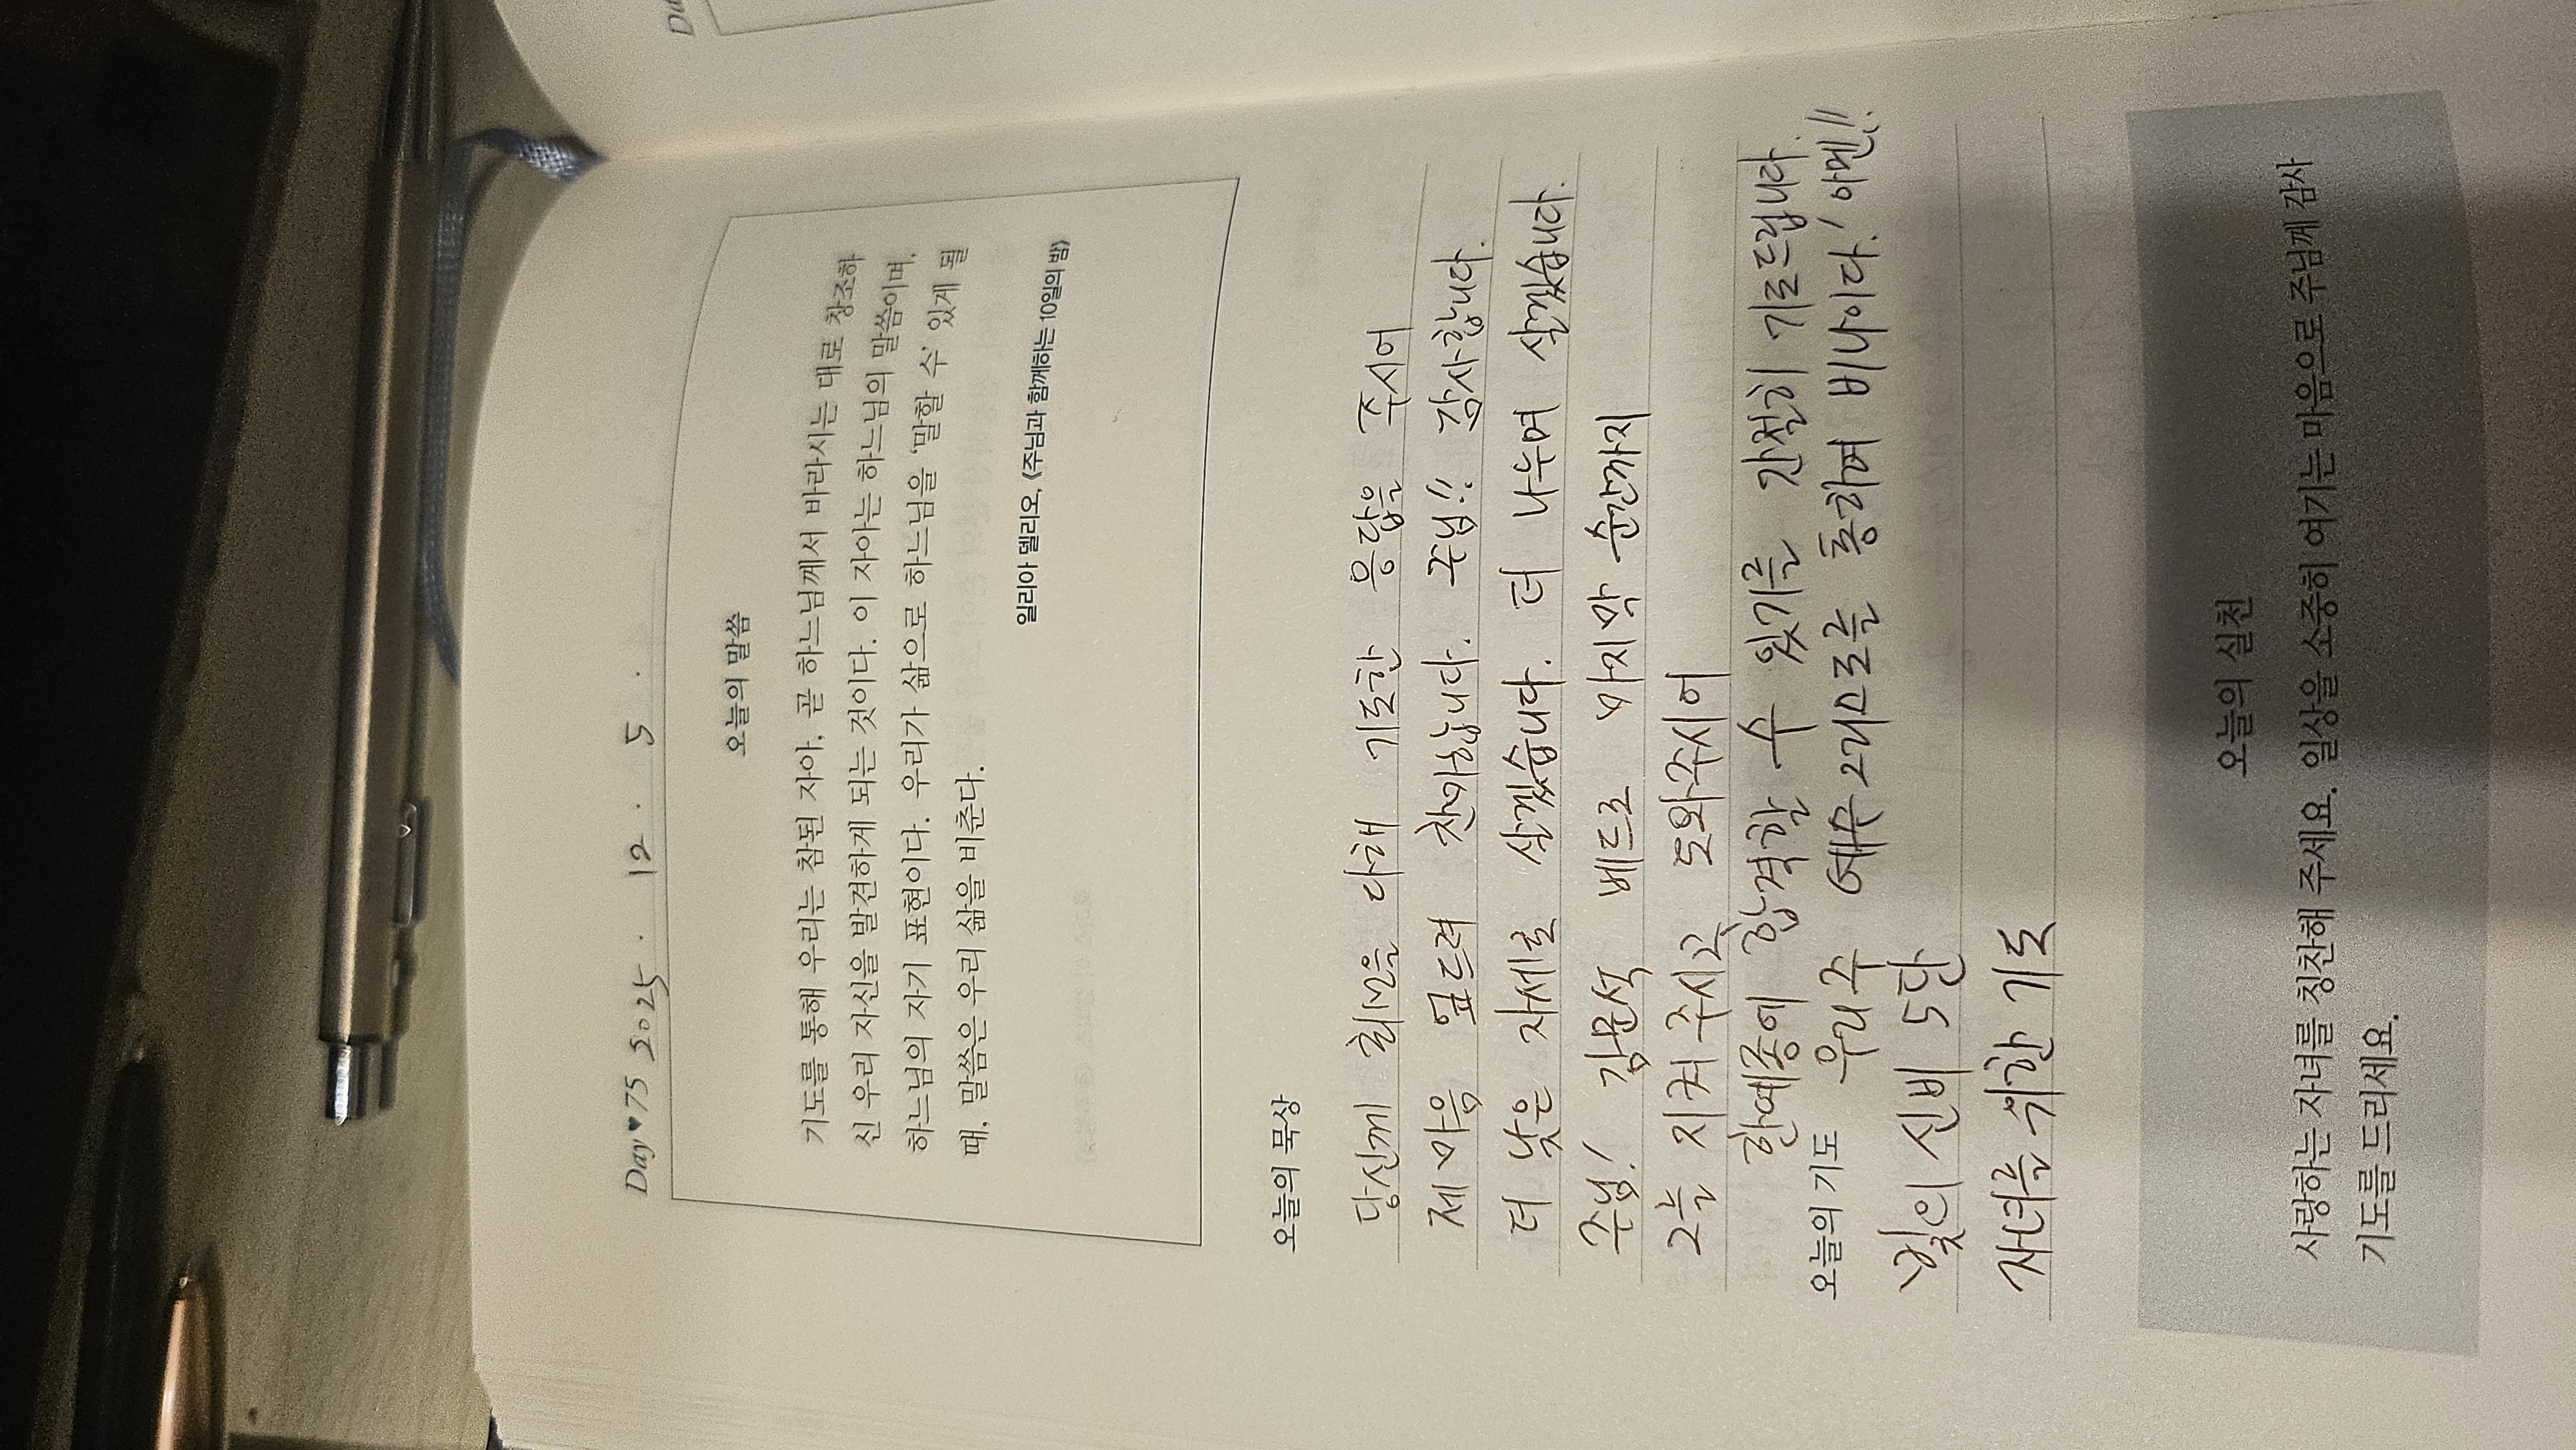 Day♥75 2025. 12. 5.
오늘의 말씀
기도를 통해 우리는 참된 자아, 곧 하느님께서 바라시는 대로 창조하
신 우리 자신을 발견하게 되는 것이다. 이 자아는 하느님의 말씀이며,
하느님의 자기 표현이다. 우리가 삶으로 하느님을 ‘말할 수’ 있게 될
때, 말씀은 우리 삶을 비춘다.
일리아 델리오, 《주님과 함께하는 10일의 밤》
오늘의 묵상
당신께 최선을 다해 기도한 응답을 주시어
제 마음 엎드려 찬미합니다. 주님!! 감사합니다.
더 낮은 자세로 살겠습니다. 더 나누며 살겠습니다.
주님! 김문석 베드로 마지막 순간까지
오늘 지켜 주시고 도와주시어
한예종에 합격할 수 있기를 간절히 기도드립니다.
오늘의 기도 우리 주 예수 그리스도를 통하여 비나이다! 아멘!!
빛의 신비 5단
자녀를 위한 기도
오늘의 실천
사랑하는 자녀를 칭찬해 주세요. 일상을 소중히 여기는 마음으로 주님께 감사
기도를 드리세요.